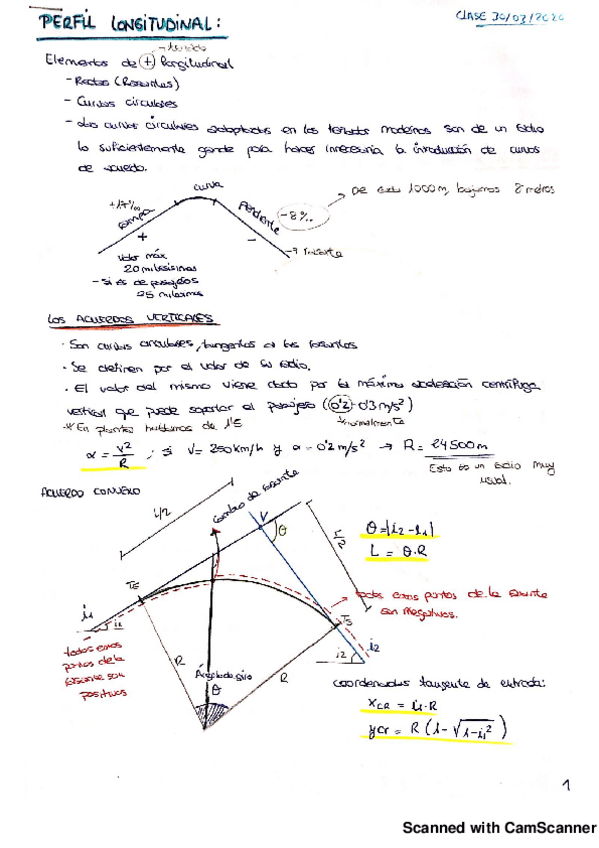 PERFIL LONGITUDINAL:
CLASE 30/03/2020
Elementos de (+) longitudinal
- Rectas (Rasantes)
- Curvas circulares
- Las curvas circulares adoptadas en los trazados modernos son de un radio
lo suficientemente grande para hacer innecesaria la introducción de curvas
de acuerdo.
curva
+17‰
rampa
+
Pendiente
-8‰
-
→ rasante
De cada 1000 m, bajamos 8 metros
valor máx
20 milésimas
- si es de pasajeros
25 milésimas
LOS ACUERDOS VERTICALES
· Son curvas circulares, tangentes a las rasantes
· Se definen por el valor de su radio.
· El valor del mismo viene dado por la máxima aceleración centrífuga
vertical que puede soportar el pasajero (0'2-0'3 m/s²)
* En planta hablamos de 1'5
normalmente
a = V²/R ; si V = 250 km/h y a = 0'2 m/s² → R = 24500 m
Esto es un radio muy
usual.
ACUERDO CONVEXO
L/2
Cambio de rasante
V
θ
L/2
θ = |i2 - i1|
L = θ·R
TE
i1
i1
todos estos puntos de la rasante
son negativos.
TS
todos estos
puntos de la
rasante son
positivos
R
Ángulo de giro
θ
R
i2
i2
coordenadas tangente de entrada:
xCR = i1·R
yCR = R (1-√1-i1²)
1
Scanned with CamScanner